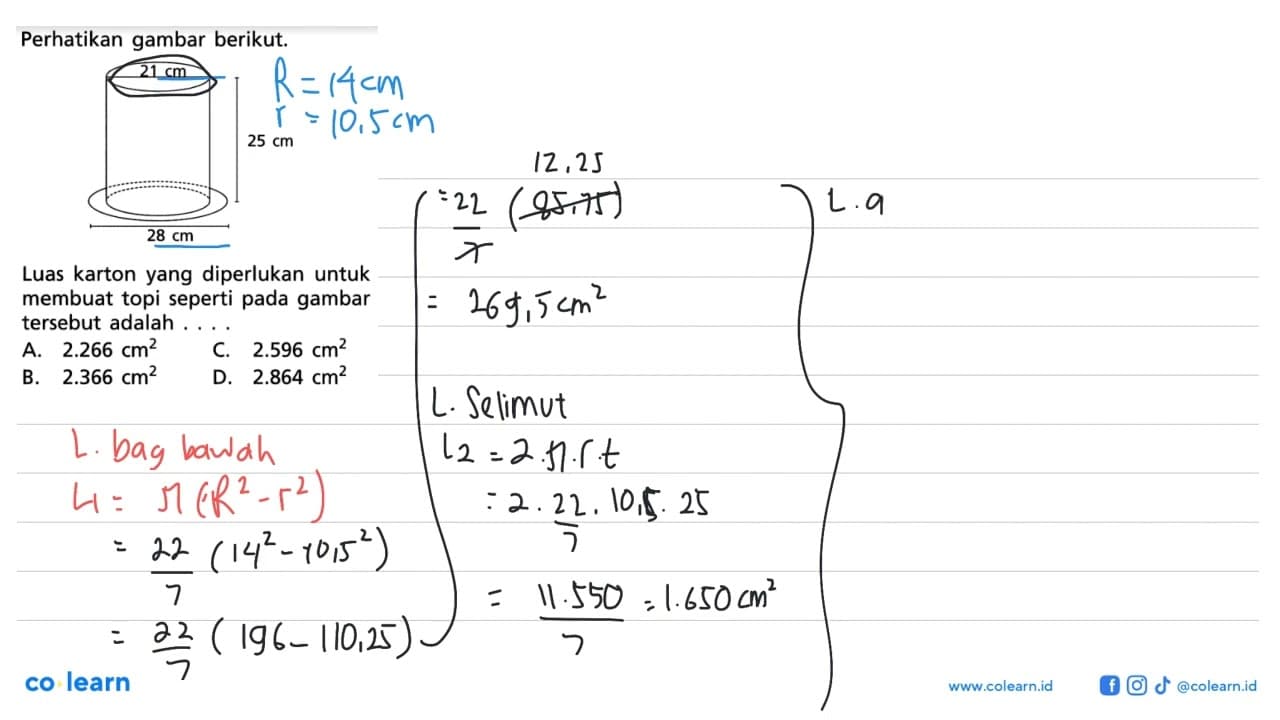 Perhatikan gambar berikut.
21 cm
R = 14 cm
r = 10,5 cm
25 cm
28 cm
Luas karton yang diperlukan untuk
membuat topi seperti pada gambar
tersebut adalah . . . .
A. 2.266 cm² C. 2.596 cm²
B. 2.366 cm² D. 2.864 cm²
L. bag bawah
L1 = π (R² - r²)
= 22/7 (14² - 10,5²)
= 22/7 (196 - 110,25)
12,25
= 22/7 (85,75)
= 269,5 cm²
L. Selimut
L2 = 2.π.r t
= 2. 22/7. 10,5. 25
= 11.550/7 = 1.650 cm²
L. a
co learn
www.colearn.id @colearn.id